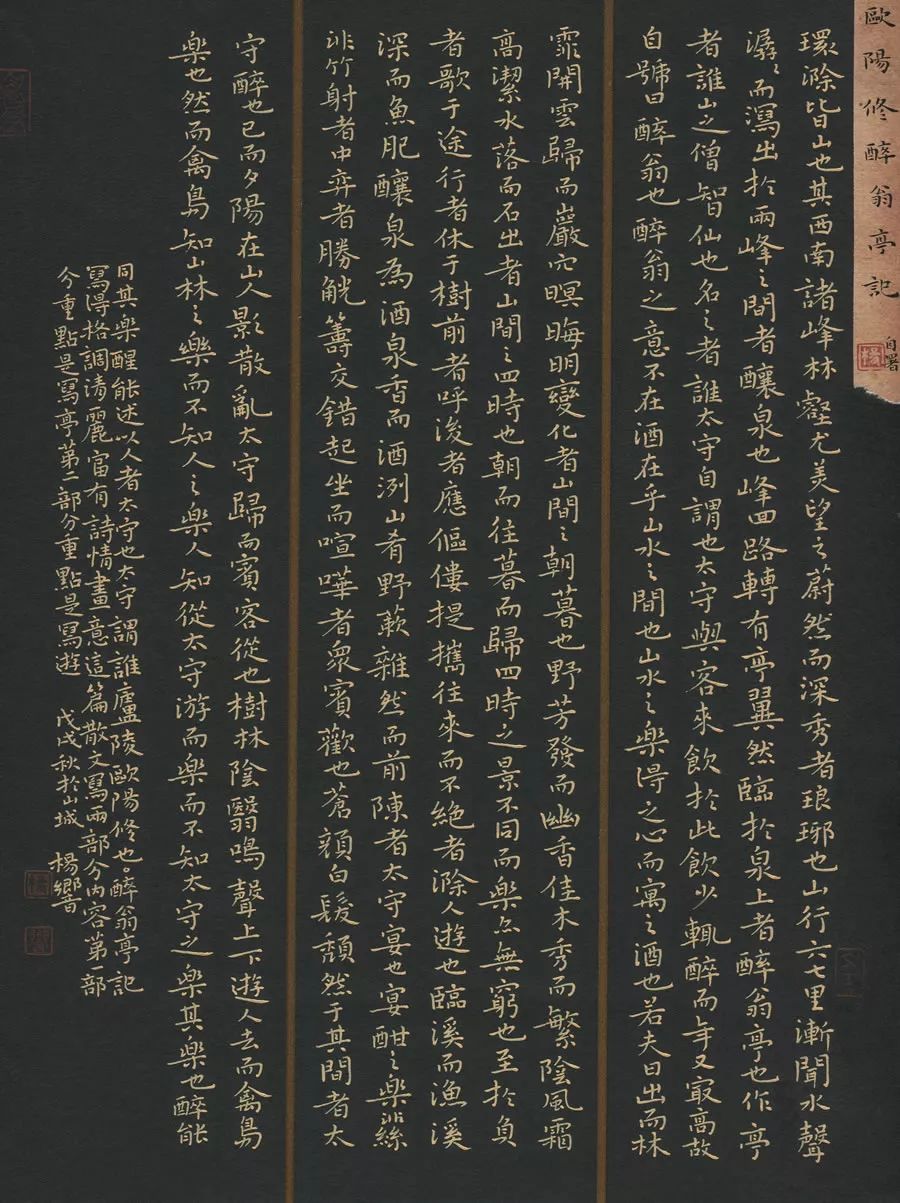 歐陽修醉翁亭記
自署
環滁皆山也其西南諸峰林壑尤美望之蔚然而深秀者琅琊也山行六七里漸聞水聲
潺〻而瀉出於兩峰之間者釀泉也峰回路轉有亭翼然臨於泉上者醉翁亭也作亭
者誰山之僧智仙也名之者誰太守自謂也太守與客來飲於此飲少輒醉而年又最高故
自號曰醉翁也醉翁之意不在酒在乎山水之間也山水之樂得之心而寓之酒也若夫日出而林
霏開雲歸而巖穴暝晦明變化者山間之朝暮也野芳發而幽香佳木秀而繁陰風霜
高潔水落而石出者山間之四時也朝而往暮而歸四時之景不同而樂亦無窮也至於負
者歌于途行者休于樹前者呼後者應傴僂提攜往來而不絕者滁人遊也臨溪而漁溪
深而魚肥釀泉為酒泉香而酒洌山肴野蔌雜然而前陳者太守宴也宴酣之樂非絲
非竹射者中弈者勝觥籌交錯起坐而喧嘩者眾賓歡也蒼顏白髮頹然于其間者太
守醉也已而夕陽在山人影散亂太守歸而賓客從也樹林陰翳鳴聲上下遊人去而禽鳥
樂也然而禽鳥知山林之樂而不知人之樂人知從太守游而樂而不知太守之樂其樂也醉能
同其樂醒能述以人者太守也太守謂誰廬陵歐陽修也。醉翁亭記
寫得格調清麗富有詩情畫意這篇散文寫兩部分內容第一部
分重點是寫亭第二部分重點是寫遊 戊戌秋於山城 楊鄉晉
楊